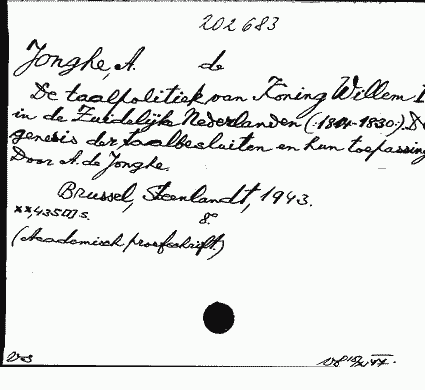 202683
Jonghe, A. de
De taalpolitiek van Koning Willem I
in de Zuidelijke Nederlanden (1814-1830). D
genesis der taalbesluiten en hun toepassing
Door A. de Jonghe.
Brussel, Steenlandt, 1943.
xx, 435 s. 8°
(Academisch proefschrift)